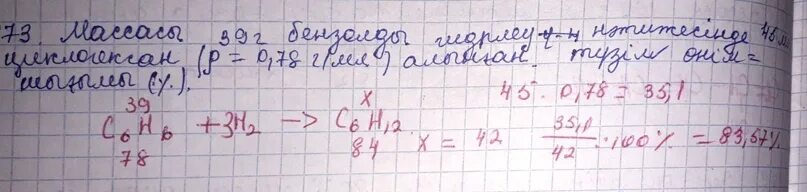 73. Массасы 39г бензолды гидрлеу нәтижесінде 45 мл
циклогексан (ρ = 0,78 г/мл) алынған. түзілген өнім
шығымы (%).
39 x 45 · 0,78 = 35,1
C₆H₆ + 3H₂ -> C₆H₁₂ x = 42 35,1/42 · 100% = 83,57%
78 84